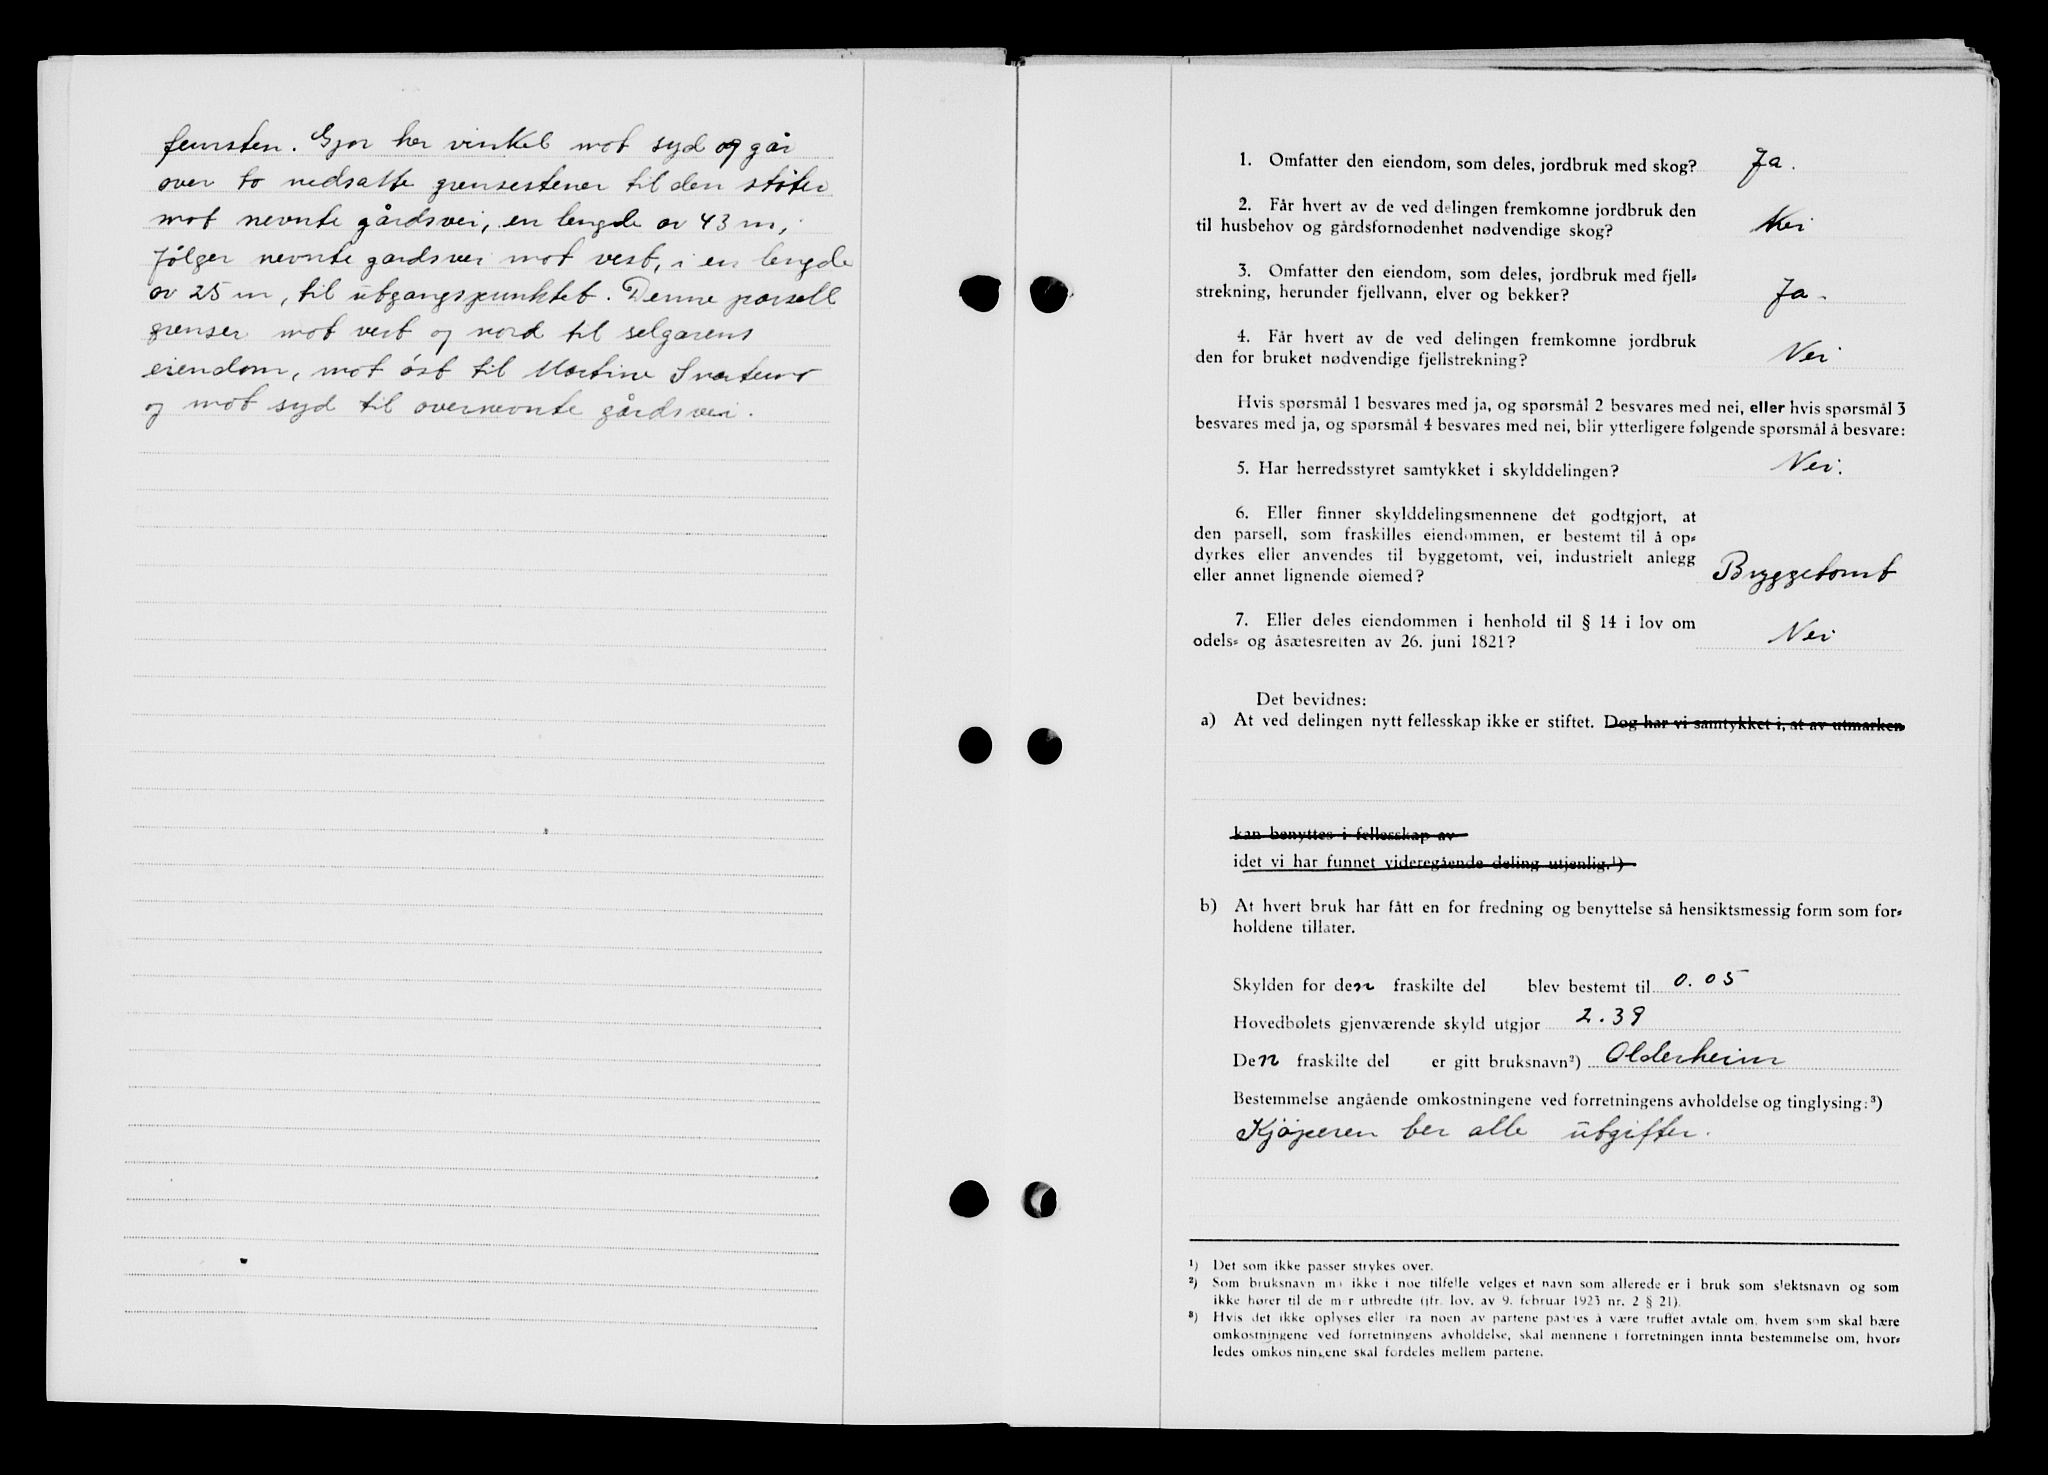 fenrsten. Gjør her vinkel mot syd og går
over to nedsatte grensestener til den støter
mot nevnte gårdsvei, en lengde av 43 m,
følger nevnte gårdsvei mot vest, i en lengde
av 25 m, til utgangspunktet. Denne parsell
grenser mot vest og nord til selgerens
eiendom, mot øst til Martine
og mot syd til overnevnte gårdsvei.
1. Omfatter den eiendom, som deles, jordbruk med skog? Ja.
2. Får hvert av de ved delingen fremkomne jordbruk den
til husbehov og gårdsfornødenhet nødvendige skog? Nei
3. Omfatter den eiendom, som deles, jordbruk med fjell-
strekning, herunder fjellvann, elver og bekker? Ja.
4. Får hvert av de ved delingen fremkomne jordbruk
den for bruket nødvendige fjellstrekning? Nei
Hvis spørsmål 1 besvares med ja, og spørsmål 2 besvares med nei, eller hvis spørsmål 3
besvares med ja, og spørsmål 4 besvares med nei, blir ytterligere følgende spørsmål å besvare:
5. Har herredsstyret samtykket i skylddelingen? Nei.
6. Eller finner skylddelingsmennene det godtgjort, at
den parsell, som fraskilles eiendommen, er bestemt til å op-
dyrkes eller anvendes til byggetomt, vei, industrielt anlegg
eller annet lignende øiemed? Byggetomt
7. Eller deles eiendommen i henhold til § 14 i lov om
odels- og åsætesretten av 26. juni 1821? Nei
Det bevidnes:
a) At ved delingen nytt fellesskap ikke er stiftet. Dog har vi samtykket i, at av utmarken
kan benyttes i fellesskap av
idet vi har funnet videregående deling utjenlig.¹)
b) At hvert bruk har fått en for fredning og benyttelse så hensiktsmessig form som for-
holdene tillater.
Skylden for den fraskilte del blev bestemt til 0.05
Hovedbølets gjenværende skyld utgjør 2.39
Den fraskilte del er gitt bruksnavn²) Olderheim
Bestemmelse angående omkostningene ved forretningens avholdelse og tinglysing:³)
Kjøperen ber alle utgifter.
¹) Det som ikke passer strykes over.
²) Som bruksnavn må ikke i noe tilfelle velges et navn som allerede er i bruk som slektsnavn og som
ikke hører til de mer utbredte (jfr. lov. av 9. februar 1923 nr. 2 § 21).
³) Hvis det ikke oplyses eller fra noen av partene påstås å være truffet avtale om, hvem som skal bære
omkostningene ved forretningens avholdelse, skal mennene i forretningen innta bestemmelse om, hvor-
ledes omkostningene skal fordeles mellem partene.